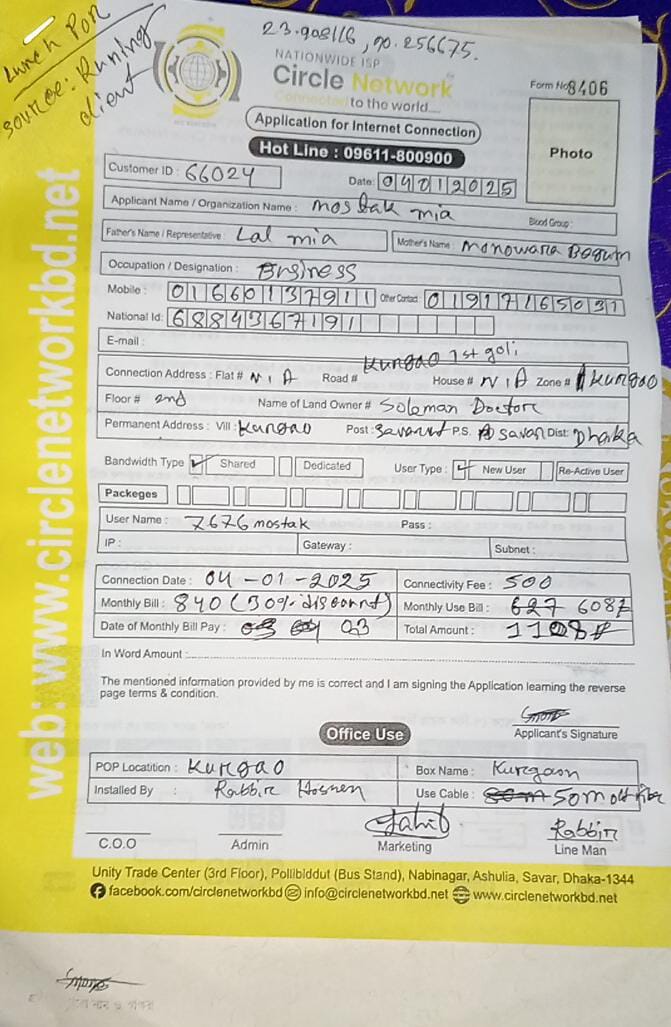 Lunch Por
source: Runing
client
23.908116, 90.256675.
NATIONWIDE ISP
Circle Network
Connected to the world....
Form No 8406
Application for Internet Connection
Hot Line : 09611-800900
Photo
Customer ID : 66024
Date: 04012025
Applicant Name / Organization Name : mostak mia
Blood Group :
Father's Name / Representative : Lal mia Mother's Name : Monowara Begum
Occupation / Designation : Business
Mobile : 01660137911 Other Contact 01917165031
National Id: 6884367191
E-mail :
Connection Address : Flat # N/A Road # Kurgao 1st goli House # N/A Zone # Kurgao
Floor # 2nd Name of Land Owner # Soleman Doctor
Permanent Address : Vill : Kurgao Post : P.S. savar Dist: Dhaka
Bandwidth Type ✓ Shared Dedicated User Type : ✓ New User Re-Active User
Packeges
User Name : 7676mostak Pass :
IP : Gateway : Subnet :
Connection Date : 04-01-2025 Connectivity Fee : 500
Monthly Bill : 840 (30% discount) Monthly Use Bill : 627 608
Date of Monthly Bill Pay : 03 Total Amount :
In Word Amount :
The mentioned information provided by me is correct and I am signing the Application learning the reverse
page terms & condition.
Applicant's Signature
Office Use
POP Locatition : Kurgao Box Name : Kurgaon
Installed By : Rabbir Hosnen Use Cable : 50m
Rabbir
C.O.O Admin Marketing Line Man
Unity Trade Center (3rd Floor), Pollibiddut (Bus Stand), Nabinagar, Ashulia, Savar, Dhaka-1344
facebook.com/circlenetworkbd info@circlenetworkbd.net www.circlenetworkbd.net
web: www.circlenetworkbd.net